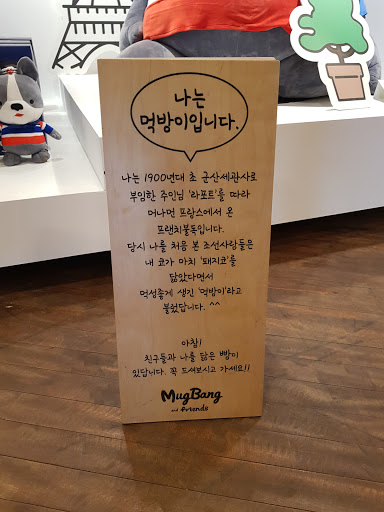 나는
먹방이입니다.
나는 1900년대 초 군산세관사로
부임한 주인님 '라포트'를 따라
머나먼 프랑스에서 온
프랜치불독입니다.
당시 나를 처음 본 조선사람들은
내 코가 마치 '돼지코'를
닮았다면서
먹성좋게 생긴 '먹방이'라고
불렀답니다. ^^
아참!
친구들과 나를 닮은 빵이
있답니다. 꼭 드셔보시고 가세요!!
MugBang
and friends